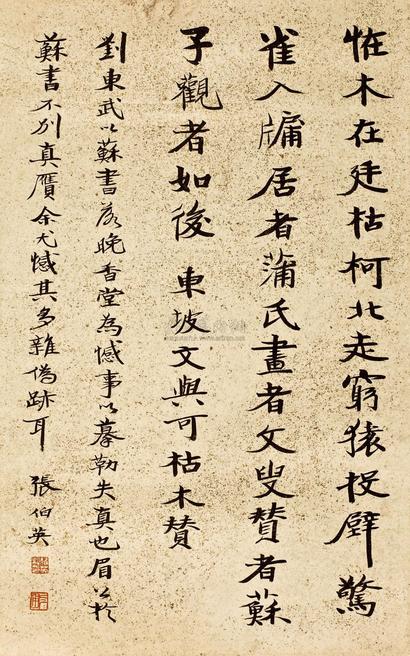 怪木在廷枯柯北走窮猿投壁驚
雀入牖居者蒲氏畫者文叟贊者蘇
子觀者如後 東坡文與可枯木贊
劉東武以蘇書為晚香堂為憾事以摹勒失真也眉公於
蘇書不別真贋余尤憾其多雜偽跡耳
張伯英